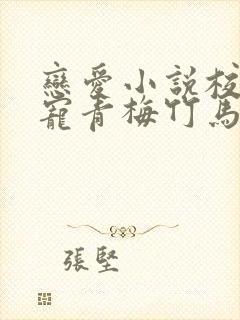 戀愛小說校
寵青梅竹馬
張堅